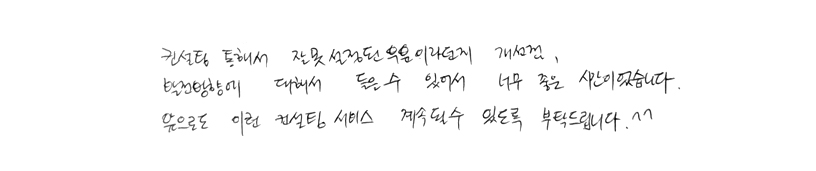 컨설팅 통해서 잘못 설정된 부분이라던지 개선점,
발전방향에 대해서 들을 수 있어서 너무 좋은 시간이었습니다.
앞으로도 이런 컨설팅 서비스 계속될 수 있도록 부탁드립니다.^^